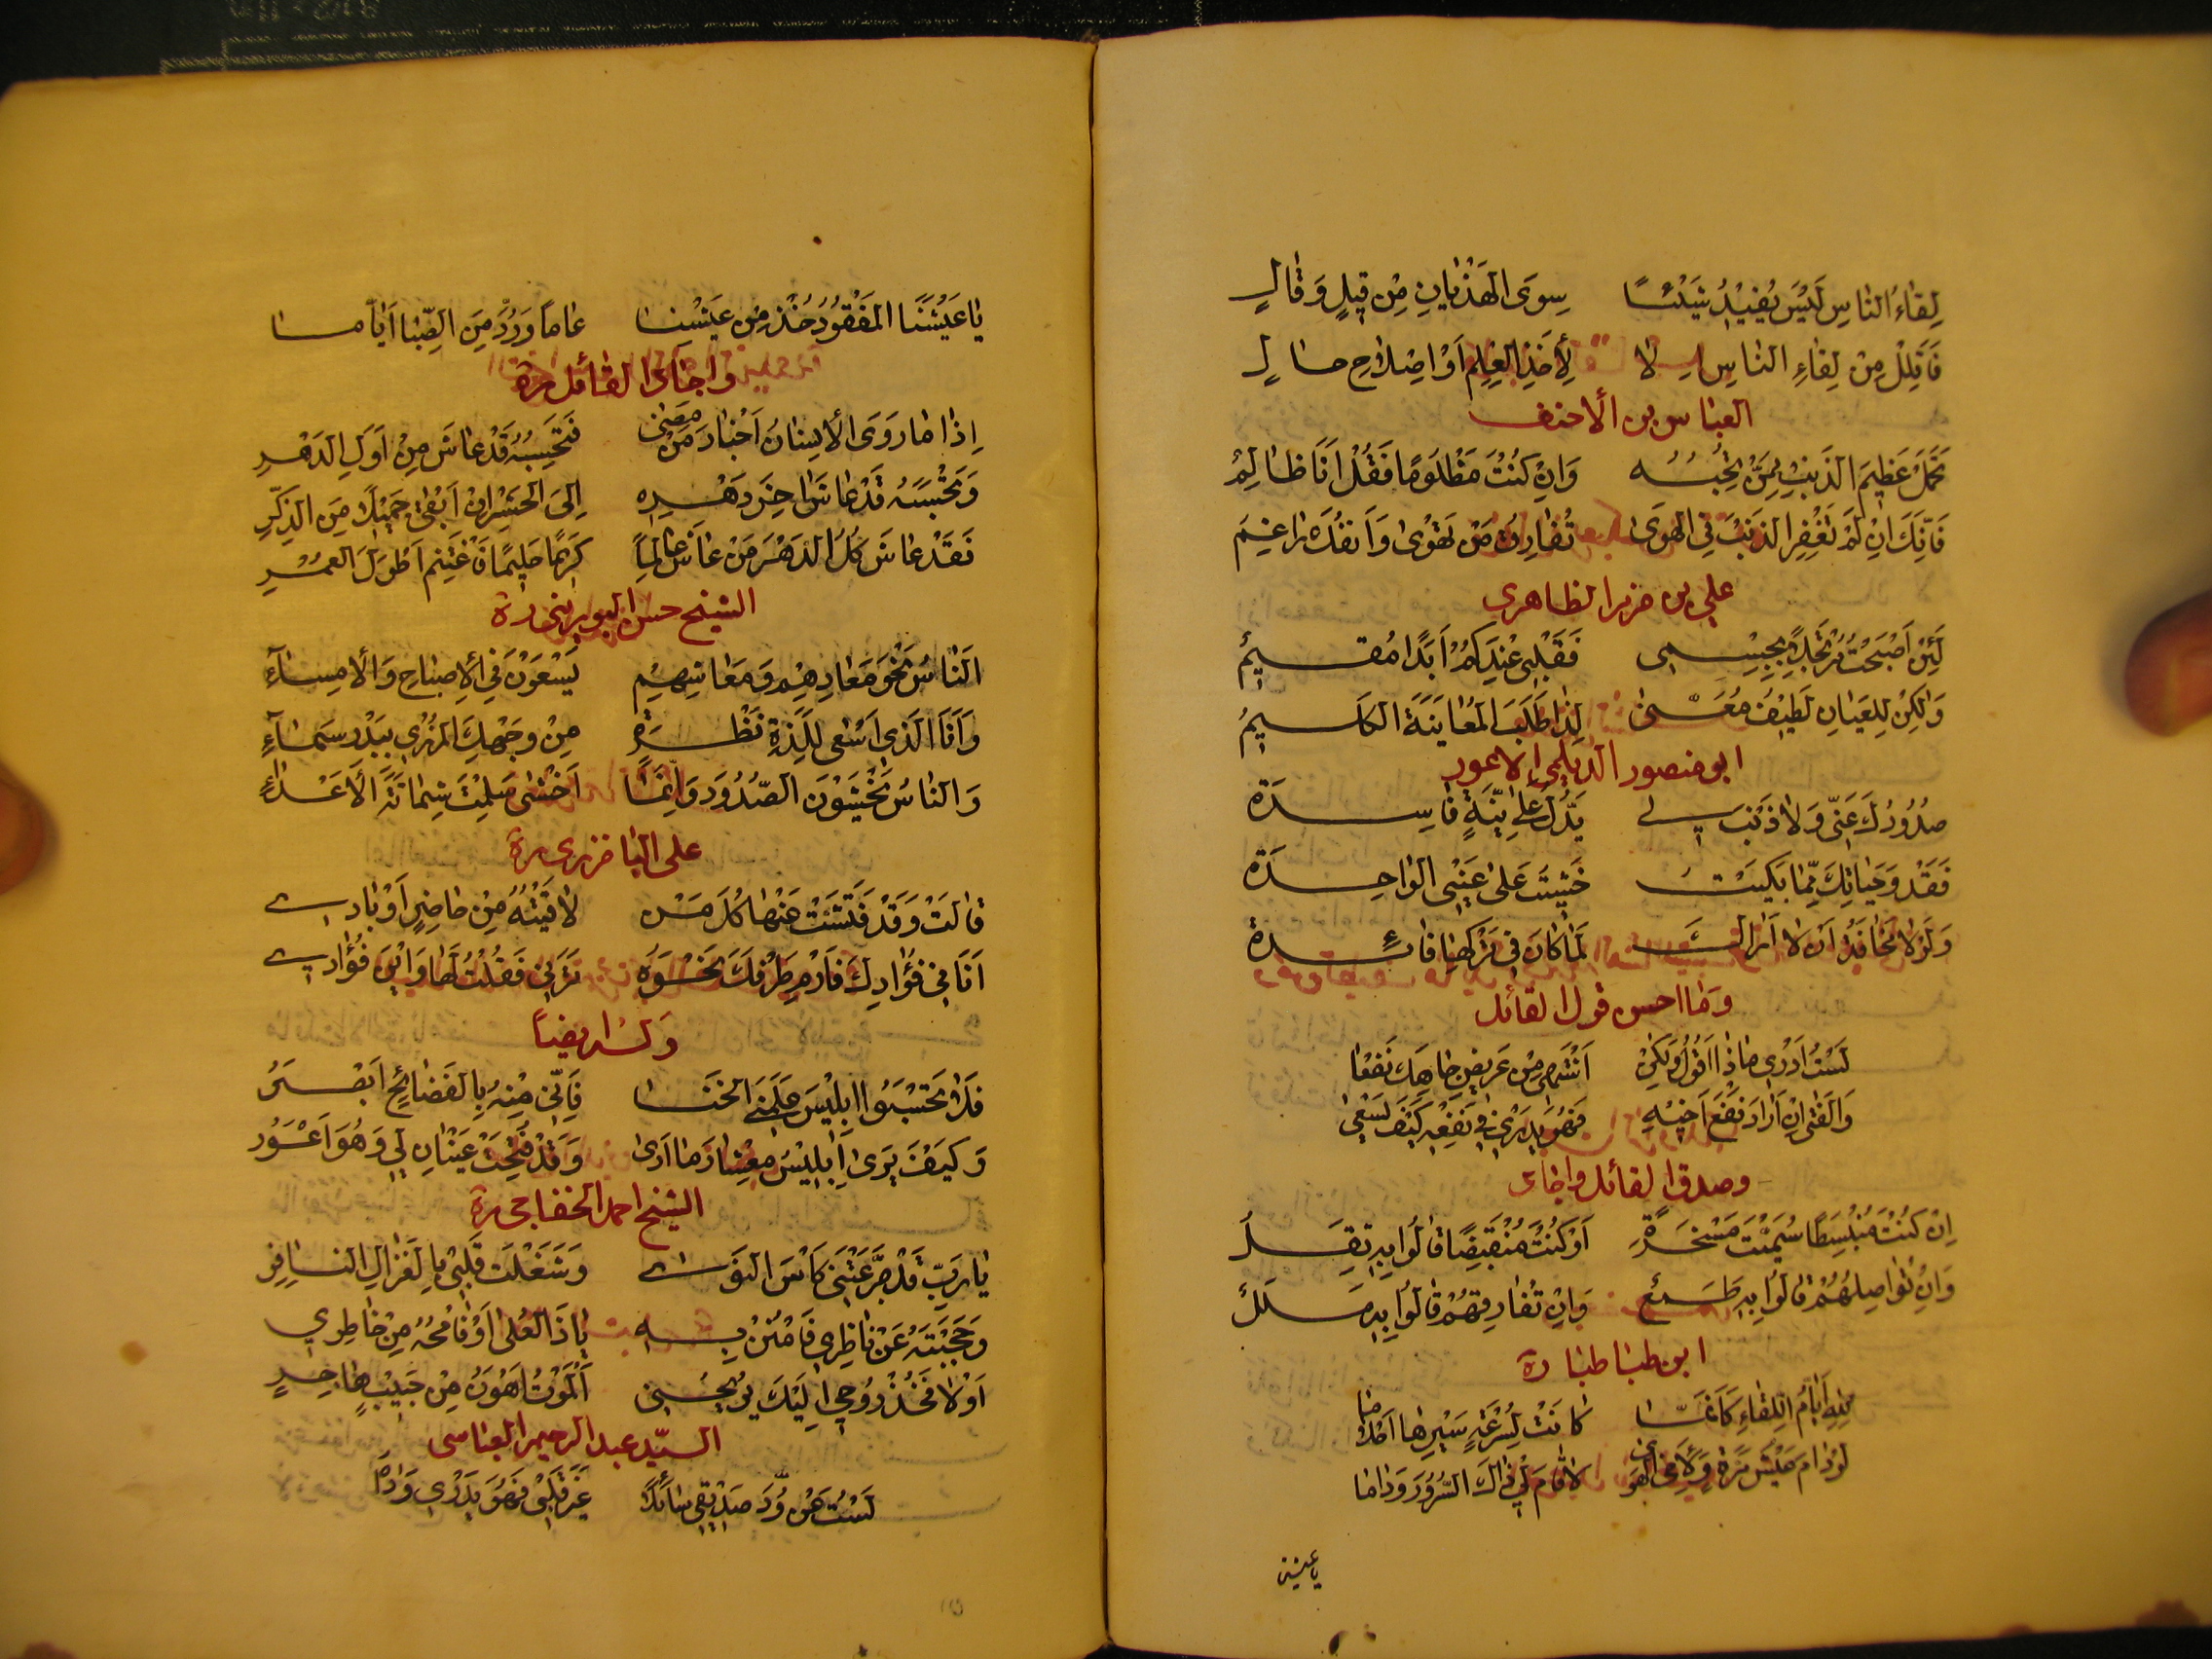 لِقاءُ النّاسِ لَيْسَ يُفيْدُ شَيْئًا سِوَى الهَذَيانِ مِنْ قِيْلٍ وَقالِ
فَاَقْلِلْ مِنْ لِقاءِ النّاسِ اِلّا لِأَخْذِ العِلْمِ اَوْ اِصْلاحِ حالِ
العباس بن الاحنف
تَحَمَّلْ عَظِيْمَ الذَنْبِ مِمَّنْ تُحِبُّهُ وَاِنْ كُنْتَ مَظْلُومًا فَقُلْ اَنَا ظالِمُ
فَاِنَّكَ اِنْ لَمْ تَغْفِرِ الذَنْبَ فِي الهَوَى تُفارِقُ مَنْ تَهْوٰى وَاَنْفُكَ راغِمُ
علي بن حزم الظاهرى
لَئِنْ اَصْبَحْتُ مُرْتَحِلًا بِجِسْمِى فَقَلْبِى عِنْدَكُمْ اَبَدًا مُقيمُ
وَلٰكِنْ لِلعَيانِ لَطِيْفُ مَعْنىً لِذا طَلَبَ المُعايَنَةَ الكَلِيمُ
ابو منصور الديلمي الاعور
صُدُوْدُكَ عَنّي وَلا ذَنْبَ لي يَدُلُّ عَلى نِيَّةٍ فاسِدَة
فَقَدْ وَحَياتِكَ مِمّا بَكَيْتُ خَشِيْتُ عَلىٰ عَيْنِي الواحِدَة
وَلَوْلا مَخافَةُ اَنْ لا اَراكَ لَمَا كانَ فِي تَرْكِها فائِدة
وَما احسن قول القائل
لَسْتُ اَدْرِي ماذا اَقُوْلُ وَلكِنْ اَشْتَهِى مِنْ عَرِيْضِ جاهِكَ نَفْعًا
وَالفَتٰى اِنْ اَرادَ نَفْعَ اَخِيْهِ فَهُوَ يَدْرِي فِي نَفْعِهِ كَيْفَ يَسْعٰى
وصدق القائل واجاد
اِنْ كُنْتُ مُنْبَسِطًا سُمِّيْتُ مَسْخَرَةً اَوْ كُنْتُ مُنْقَبِضًا قالُوا بِهِ ثِقَلُ
وَاِنْ تُواصِلْهُمْ قالُوا بِهِ طَمَعٌ وَاِنْ تُفارِقْهُمْ قالُوا بِهِ مَلَلُ
ابن طباطبا رة
لِلهِ اَيّامُ اللِقاءِ كَاَنَّما كانَتْ لِسُرْعَةِ سَيْرِها اَحْلاما
لَوْ دامَ عَيْشٌ مَرَّةً لِاَخي الهَوىٰ لَاَقامَ لي ذاكَ السُرُوْرَ وَداما
يا عيش
يا عَيْشَنَا المَفْقُوْدُ خُذْ مِنْ عَيْشِنا عامًا وَرُدَّ مِنَ الصِّبا اَيّاما
واجاد القائل رة
اِذا ما رَوَى الاِنِسانُ اَخْبارَ مَنْ مَضٰى فَتَحْسِبُهُ قَدْ عاشَ مِنْ اَوَّلِ الدَهْرِ
وَتَحْسَبُهُ قَدْ عاشَ آخِرَ دَهْرِهِ اِلَى الحَشْرِ اِنْ اَبْقىٰ جَمِيْلًا مِنَ الذِكْرِ
فَقَدْ عاشَ كُلَّ الدَهْرَ مَنْ عاشَ عالِمًا كَرِيمًا حَلِيمًا فَاغْتَنِمْ اَطْوَلَ العُمْرِ
الشيخ حسن البوريني رة
اَلنّاسُ نَحْوَ مَعادِهِمْ وَمَعاشِهِمْ يَسْعَوْنَ فِي الاِصْباحِ وَالاِمْساءِ
وَاَنَا الَّذِي اَسْعى لِلَذَّةِ نَظْرَةٍ مِنْ وَجْهِكَ المُزْرِي بِبَدْرِ سَماءِ
وَالنّاسُ يَخْشَوْنَ الصُّدُوْدَ وَاِنَّما اَخْشٰى سَلِمْتَ شَماتَةَ الأَعْداءِ
على الباخزرى رة
قالَتْ وَقَدْ فَتَّشْتُ عَنْها كُلَّ مَنْ لاقَيْتُهُ مِنْ حاضِرٍ اَوْ بادي
اَنَا فِي فُؤادِكَ فَارْمِ طَرْفَكَ نَحْوَهُ تَرَنِي فَقُلْتُ لَها وَاَيْنَ فُؤادي
وَلهُ ايضًا
فَلا تَحْسَبُوا اِبْلِيْسَ عَلَّمَنِي الخَنا فَاِنّي مِنْهُ بِالفَضائِحِ اَبْصَرُ
وَكَيْفَ يَرَى اِبْلِيْسُ مِعْشارَ ما اَرَى وَقَدْ فُتِحَتْ عَيْنانِ لِي وَهُوَ اَعْوَرُ
الشيخ احمد الخفاجى رة
يا رَبِّ قَدْ جَرَّعْتَنِي كَاْسَ النَوى وَشَغَلْتَ قَلْبِي بِالغَزالِ النافِرِ
وَحَجَبْتَهُ عَنْ ناظِرِي فَامْنُنْ بِه يا ذَا العُلىٰ اَوْ فَامْحُهُ مِنْ خاطِري
اَوْلا فَخُذْ رُوْحِي اِلَيْكَ تُرِيْحُنِي اَلْمَوْتُ اَهْوَنُ مِنْ حَبِيْبٍ هاجِرِ
السيّد عبد الرحيم العباسى
لَسْتُ عَنْ وُدِّ صَدِيْقِي سائِلًا غَيْرَ قَلْبِي فَهُوَ يَدْرِي وَدَّهُ